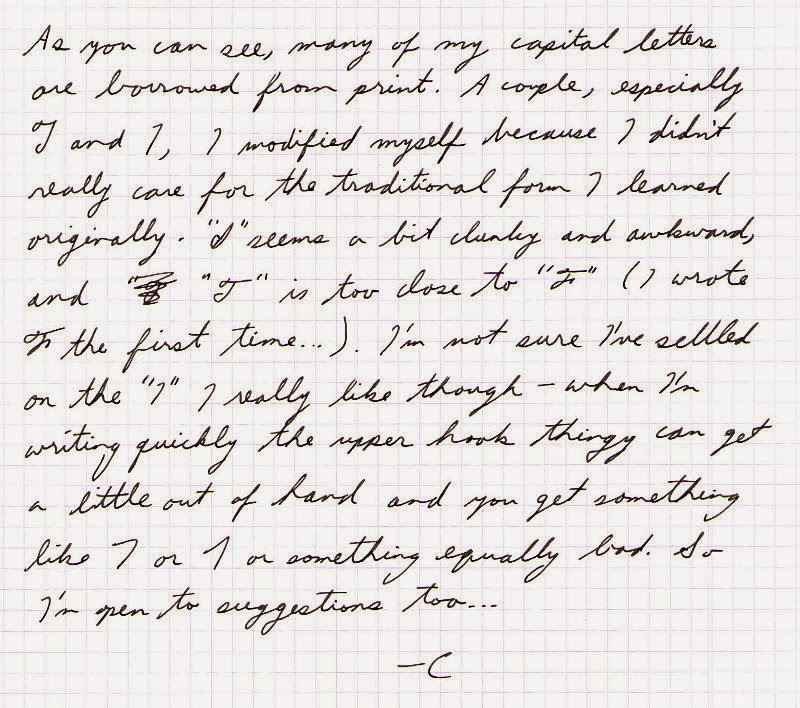 As you can see, many of my capital letters
are borrowed from print. A couple, especially
T and I, I modified myself because I didn't
really care for the traditional form I learned
originally. "I" seems a bit clunky and awkward,
and "T" is too close to "F" (I wrote
F the first time...). I'm not sure I've settled
on the "I" I really like though – when I'm
writing quickly the upper hook thingy can get
a little out of hand and you get something
like 7 or 1 or something equally bad. So
I'm open to suggestions too...
–C